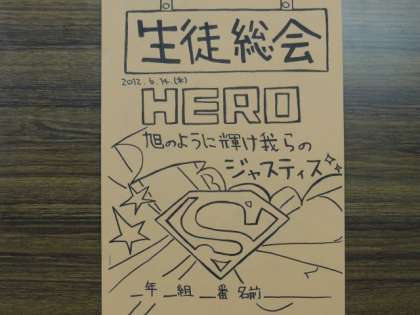 生徒総会
2012.6.14.(木)
HERO
旭のように輝け我らの
ジャスティス
S
__年__組__番 名前________